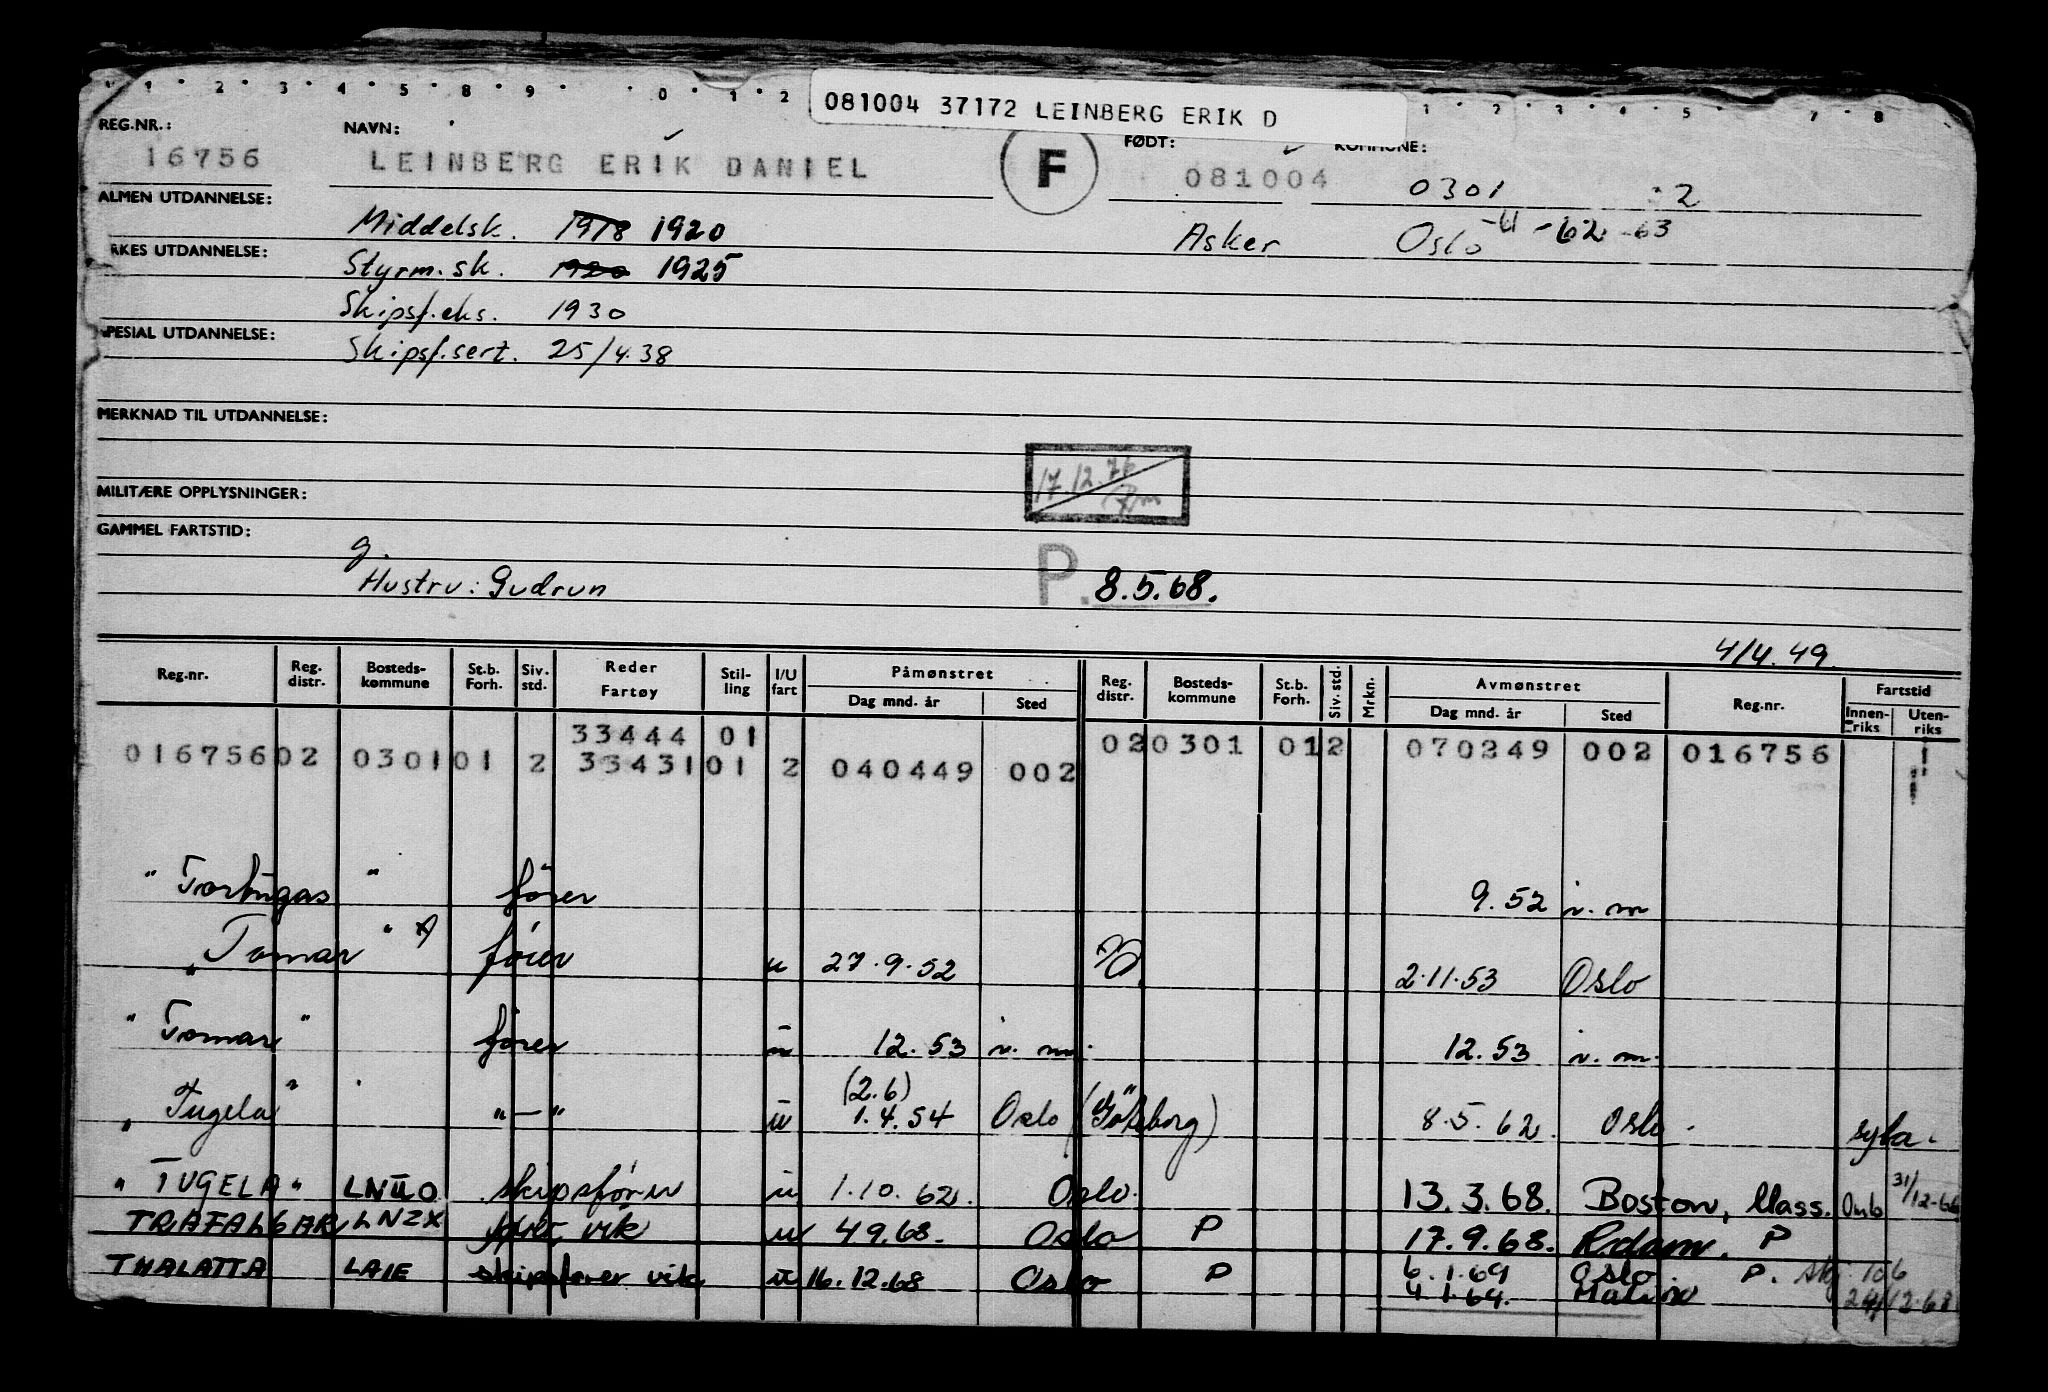 1 2 3 4 5 8 9 0 1 2 1 2 3 4 5 7 8
081004 37172 LEINBERG ERIK D
REG.NR.: NAVN: FØDT: KOMMUNE:
16756 LEINBERG ERIK DANIEL F 081004 0301 2
ALMEN UTDANNELSE: Middelsk. 1918 1920 Asker Oslo -62 -63
RKES UTDANNELSE: Styrm.sk. 1920 1925
Skipsf.eks. 1930
PESIAL UTDANNELSE: Skipsf.sert. 25/4.38
MERKNAD TIL UTDANNELSE:
17.12.76
MILITÆRE OPPLYSNINGER:
GAMMEL FARTSTID:
g.
Hustru: Gudrun P. 8.5.68.
4/4.49.
Reg.nr. Reg. distr. Bosteds-kommune St.b. Forh. Siv. std. Reder Fartøy Stil-ling I/U fart Påmønstret Dag mnd. år Sted Reg. distr. Bosteds-kommune St.b. Forh. Siv. std. Mrkn. Avmønstret Dag mnd. år Sted Reg.nr. Fartstid Innen-riks Uten-riks
33444 01
01675602 030101 2 3343101 2 040449 002 020301 012 070249 002 016756
" Tortugas " fører 9.52 n. m
" Tomar " fører u 27.9.52 2.11.53 Oslo
" Tomar " fører u 12.53 n. m. 12.53 n. m.
(2.6)
" Tugela " "—" u 1.4.54 Oslo (Göteborg) 8.5.62 Oslo.
" TUGELA " LNUO skipsfører u 1.10.62. Oslo. 13.3.68. Boston, Mass. 31/12-66
TRAFALGAR LNZX vik u 4.9.68. Oslo P 17.9.68. Rdam. P
THALATTA LAIE skipsfører vik u 16.12.68 Oslo P 6.1.69 Oslo P.
4.1.64.